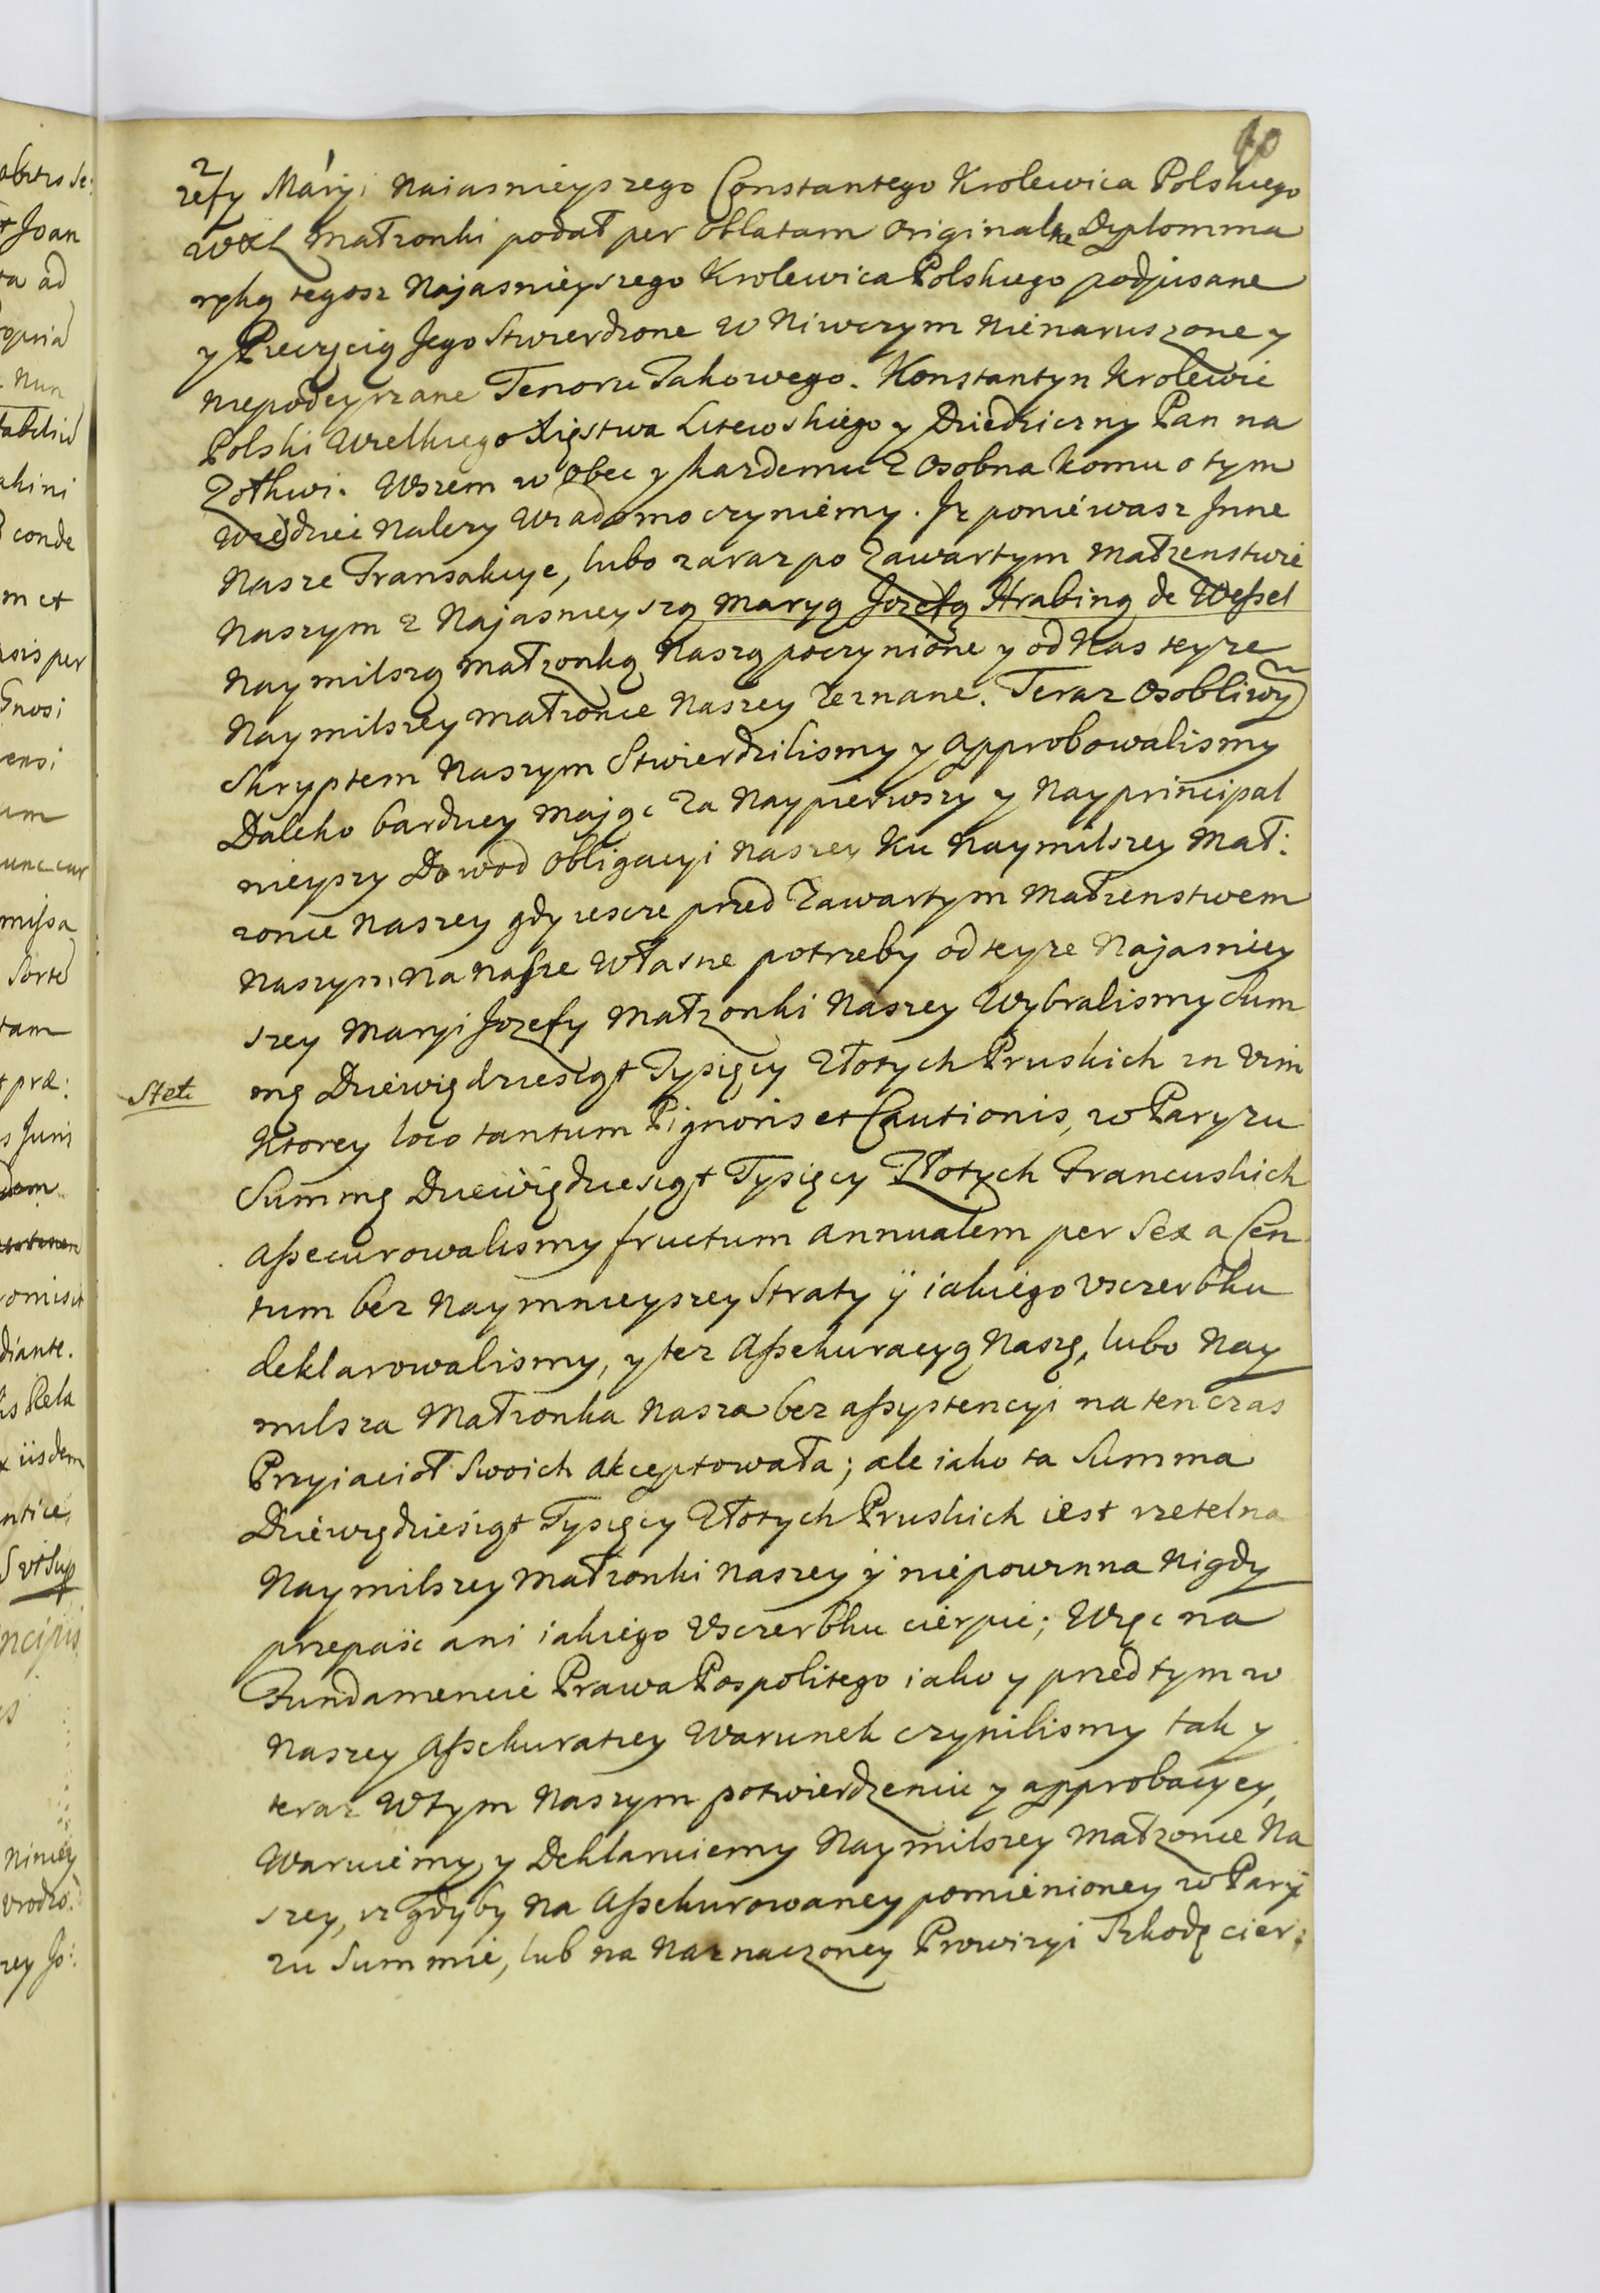 40
zefy Maryi Naiasnieyszego Constantego Krolewica Polskiego
WXL Małzonki podał per oblatam originalne Dyplomma
ręką tegosz Najasnieyszego Krolewica Polskiego podpisane
y Pieczęcią Jego Stwierdzone w Niwczym Nienaruszone y
niepodeyrzane Tenoru Takowego. Konstantyn Krolewic
Polski Wielkiego Xięstwa Litewskiego y Dziedziczny Pan na
Zołkwi. Wszem w Obec y kazdemu z osobna komu o tym
Wiedziec Nalezy Wiadomo czyniemy. Jz poniewasz Jnne
Nasze Transakcye, lubo zaraz po Zawartym Małzenstwie
Naszym z Najasnieyszą Maryą Jozefą Hrabiną de Wessel
Naymilszą Małzonką Naszą poczynione y od Nas teyze
Naymilszey Małzonce Naszey Zeznane. Teraz Osobliwy
Skryptem Naszym Stwierdzilismy y approbowalismy
Daleko bardziey Mając Za Naypierwszy y Nayprincipal
nieyszy Dowod Obligacyi Naszey Ku Naymilszey Mał:
zonce Naszey gdy ieszcze przed Zawartym Małzenstwem
Naszym, Na nasze Własne potrzeby od teyze Najasniey
szey Maryi Jozefy Małzonki Naszey Wybralismy Sum
mę Dziewiędziesiąt Tysięcy Złotych Pruskich in Vim
Ktorey loco tantum Pignoris et Cautionis, w Paryzu
Summę Dziewiędziesiąt Tysięcy Złotych Francuskich
Assecurowalismy fructum annualem per Sex a Cen
tum bez Naymnieyszey Straty ÿ iakiego Vszczerbku
deklarowalismy, y tez Assekuracyą Naszę, lubo Nay
milsza Małzonka Nasza bez assystencyi na ten czas
Przyiacioł Swoich akceptowała; ale iako ta Summa
Dziewiędziesiąt Tysięcy Złotych Pruskich iest rzetelna
Naymilszey Małzonki naszey ÿ niepowinna Nigdy
przepaść ani iakiego Vszczerbku cierpieć; Więc na
Fundamencie Prawa Pospolitego iako y przedtym w
Naszey Assekuratiey Warunek czynilismy tak y
teraz Wtym Naszym potwierdzeniu y approbacyey,
Waruiemy, y Deklaruiemy Naymilszey Małzonce Na
szey, iz gdyby Na Assekurowaney pomienioney w Pary
zu Summie, lub na Naznaczoney Prowizyi Szkodę cier:
Stet.